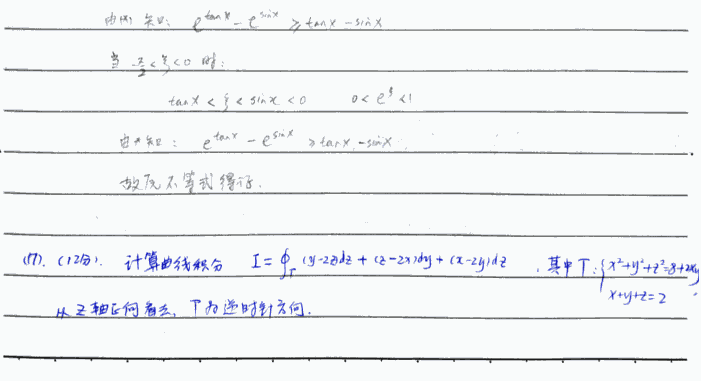 由 知: e^{tanx} - e^{sinx} ≥ tanx - sinx
当 -π/2 < ξ < 0 时:
tanx < ξ < sinx < 0 0 < e^ξ < 1
由 知: e^{tanx} - e^{sinx} ≥ tanx - sinx
故原不等式得证.
(17). (12分). 计算曲线积分 I = ∮_Γ (y-2z)dz + (z-2x)dy + (x-2y)dz , 其中 Γ: { x²+y²+z²=8+2xy
x+y+z=2 ,
从 Z 轴正向看去, Γ为逆时针方向.